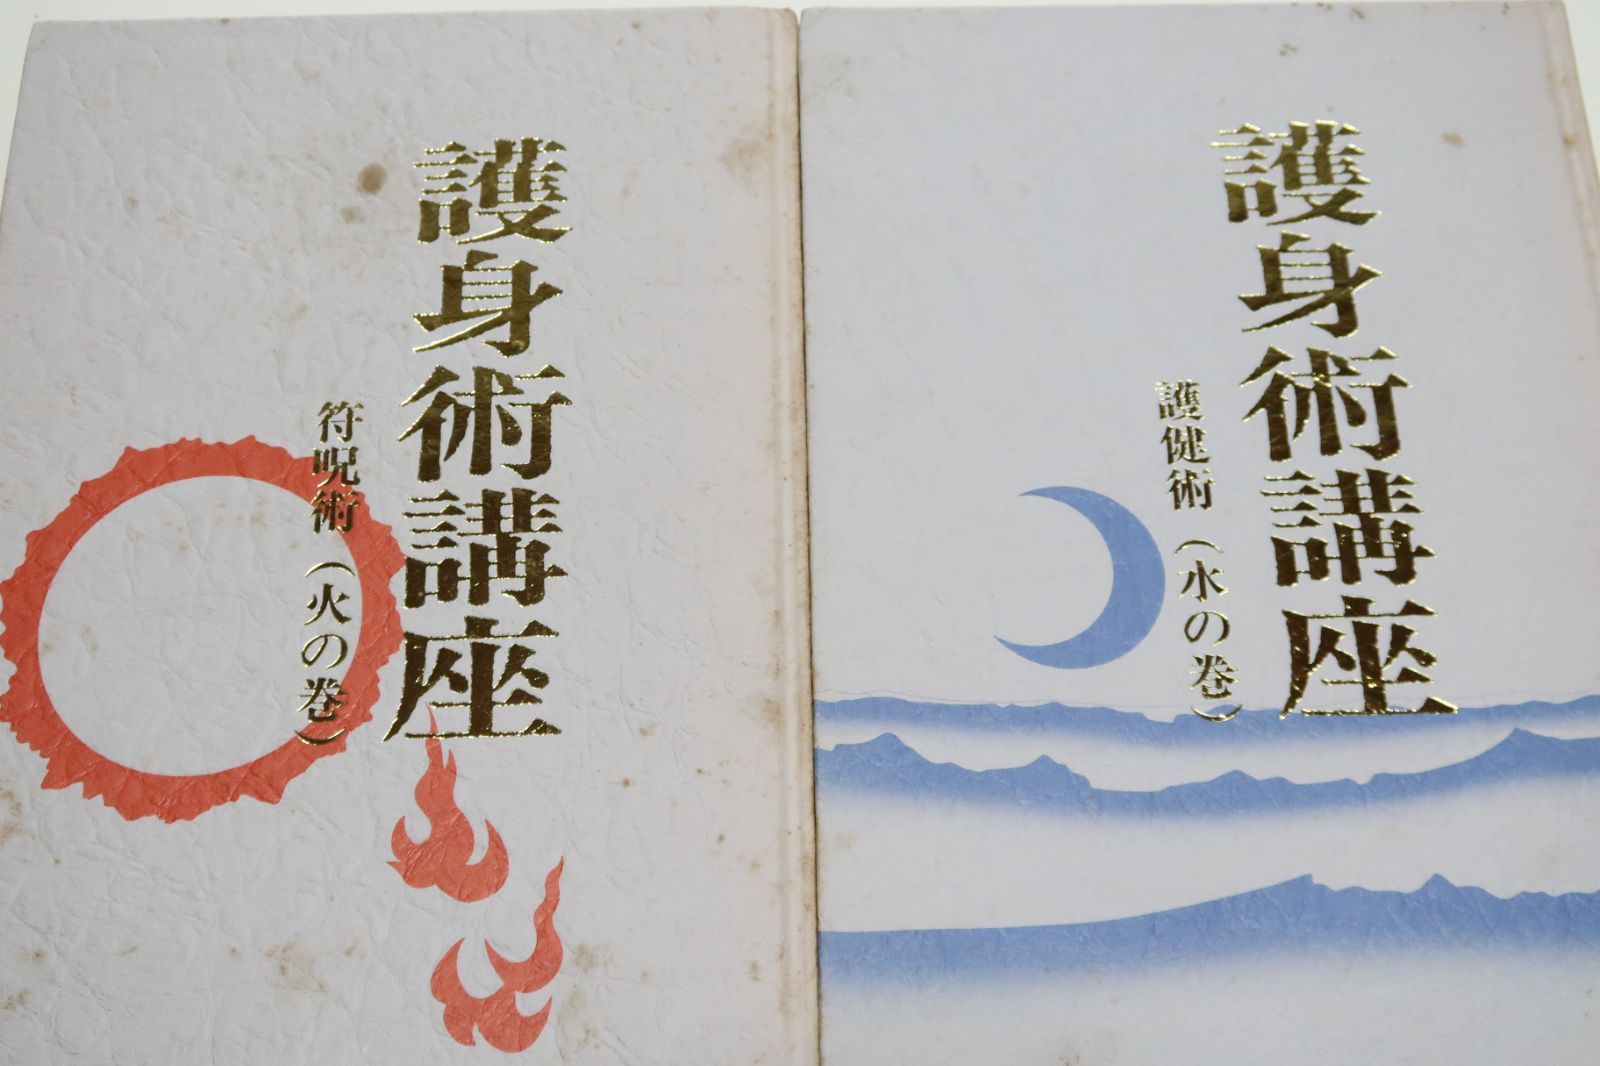 護身術講座
符呪術(火の巻)
護身術講座
護健術(水の巻)